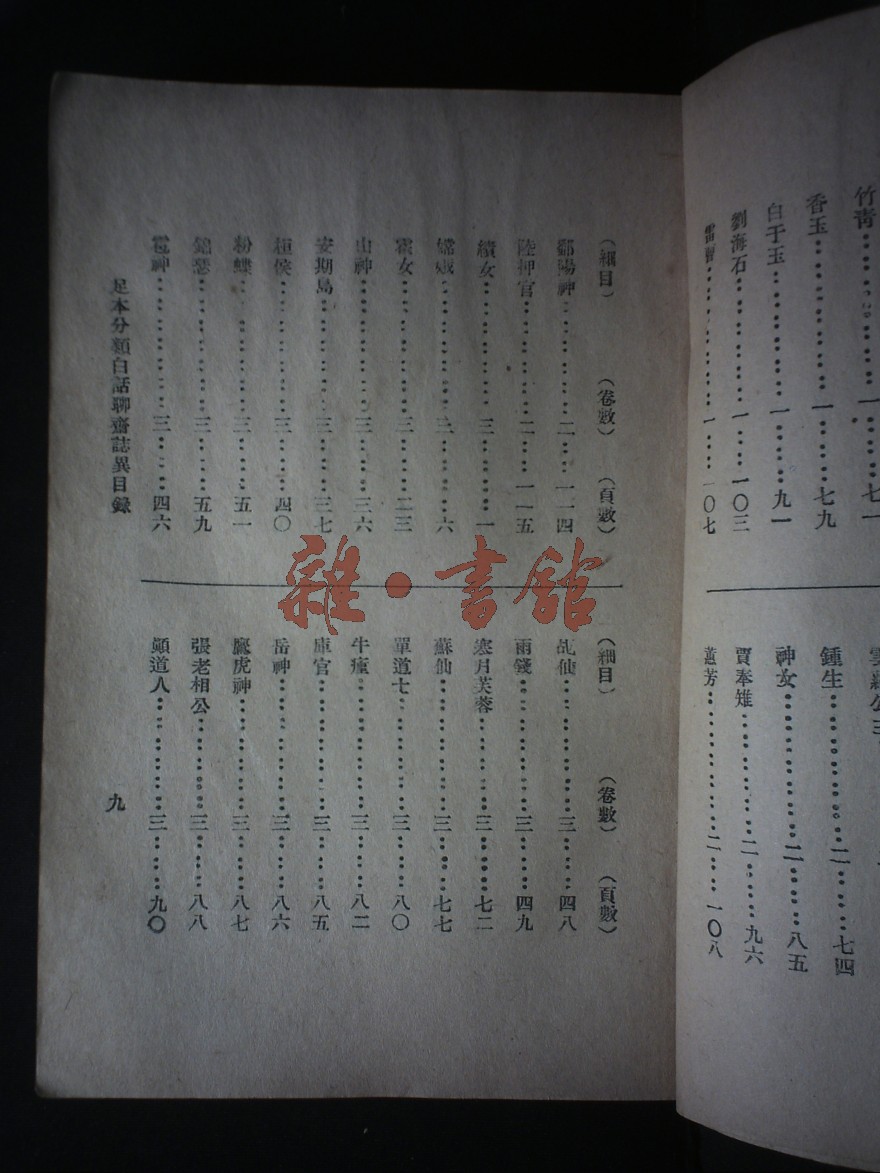 竹青……一……七一
香玉……一……七九
白于玉……一……九一
劉海石……一……一〇三
雷曹……一……一〇七
鍾生……二……七四
神女……二……八五
賈奉雉……二……九六
蕙芳……二……一〇八
（細目）（卷數）（頁數）
鄱陽神……二……一一四
陸押官……二……一一五
績女……三……一
嫦娥……三……六
霍女……三……二三
山神……三……三六
安期島……三……三七
桓侯……三……四〇
粉蝶……三……五一
錦瑟……三……五九
雹神……三……四六
（細目）（卷數）（頁數）
乩仙……三……四八
雨錢……三……四九
寒月芙蓉……三……七二
蘇仙……三……七七
單道士……三……八〇
牛㾮……三……八二
庫官……三……八五
岳神……三……八六
鷹虎神……三……八七
張老相公……三……八八
顛道人……三……九〇
足本分類白話聊齋誌異目錄
九
雜·書館